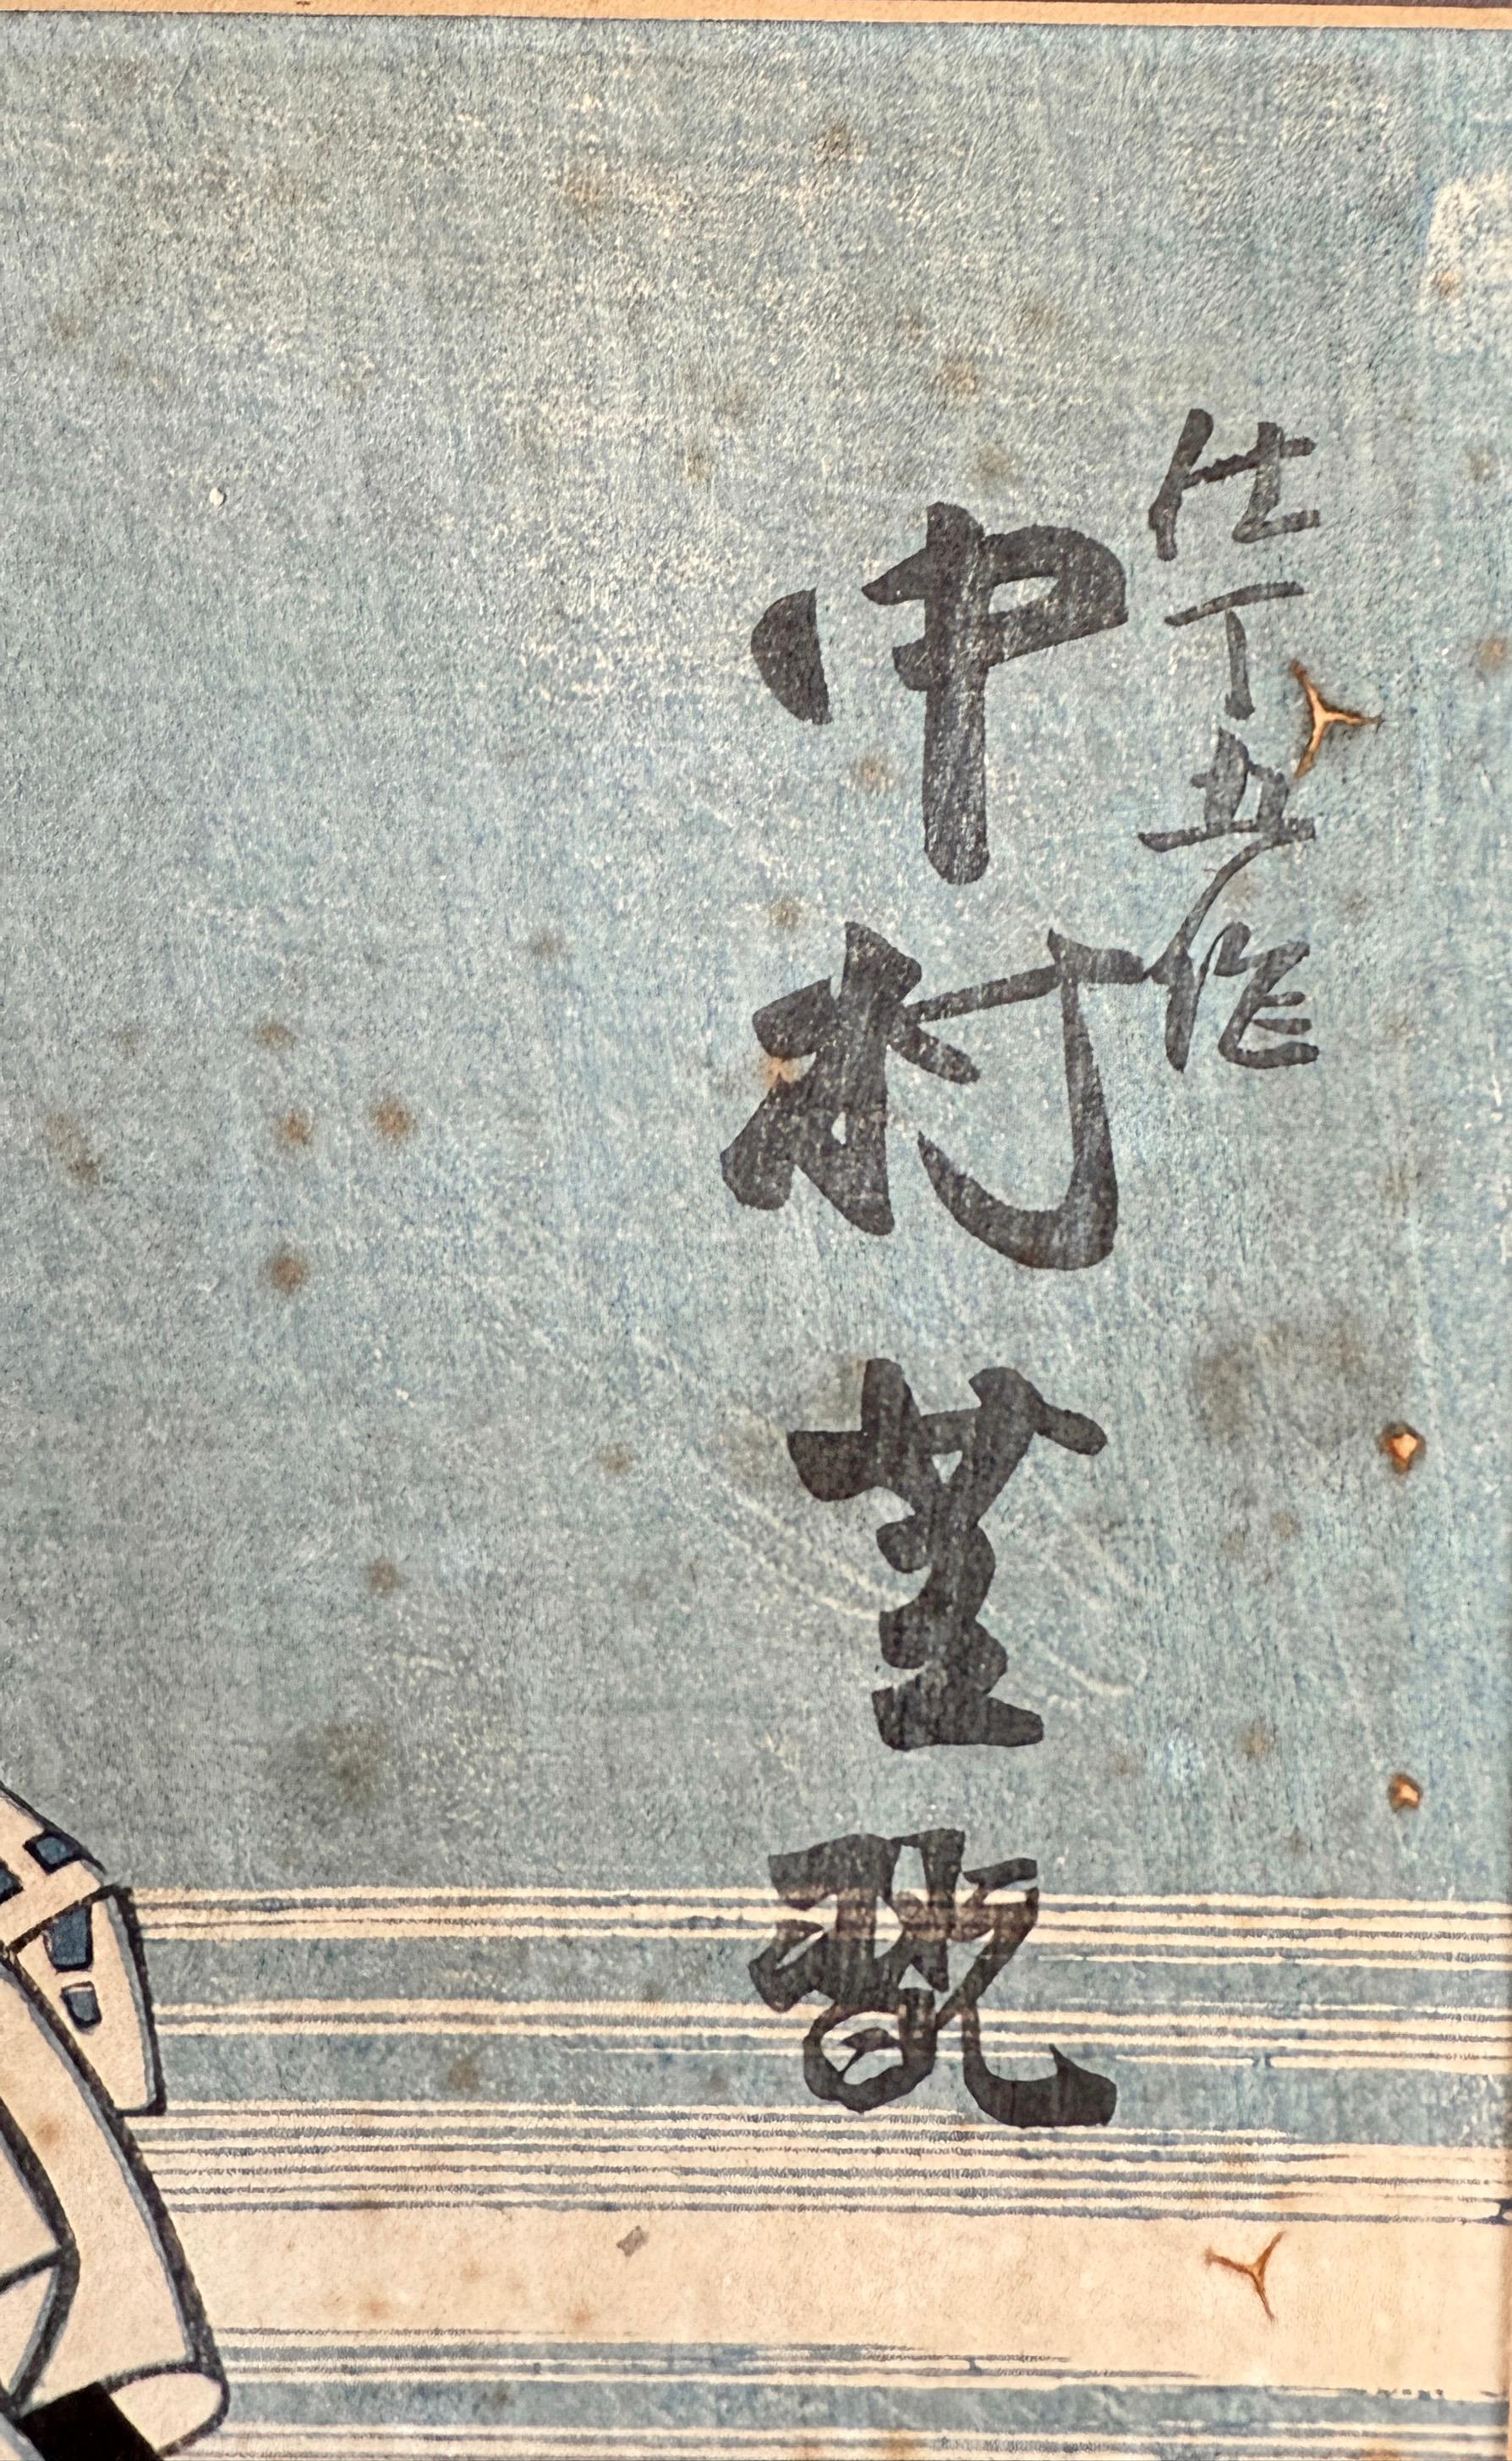 仕丁五作
中村芝翫